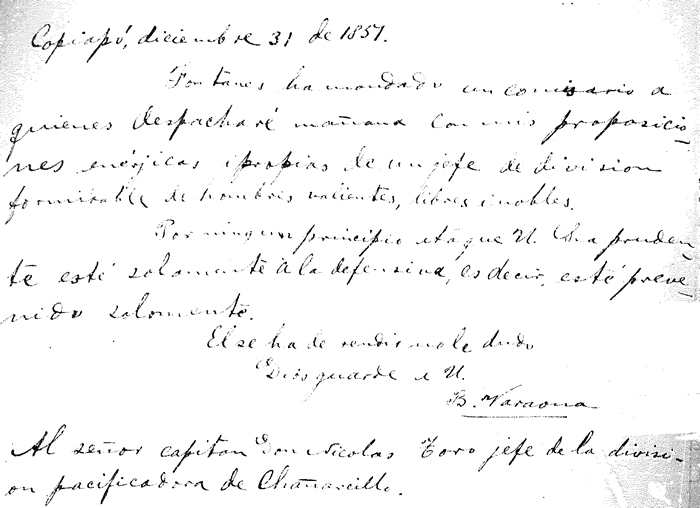 Copiapó, diciembre 31 de 1851.
Fontanes ha mandado un comisario a
quienes despacharé mañana con mis proposicio-
nes enérjicas i propias de un jefe de division
formidable de hombres valientes, libres i nobles.
Por ningun principio ataque U. Sea pruden-
te esté solamente a la defensiva, es decir, esté preve-
nido solamente.
El se ha de rendir no le dude
Dios guarde a U.
B. Varaona
Al señor capitan Don Nicolas Toro jefe de la divisi-
on pacificadora de Chañarcillo.